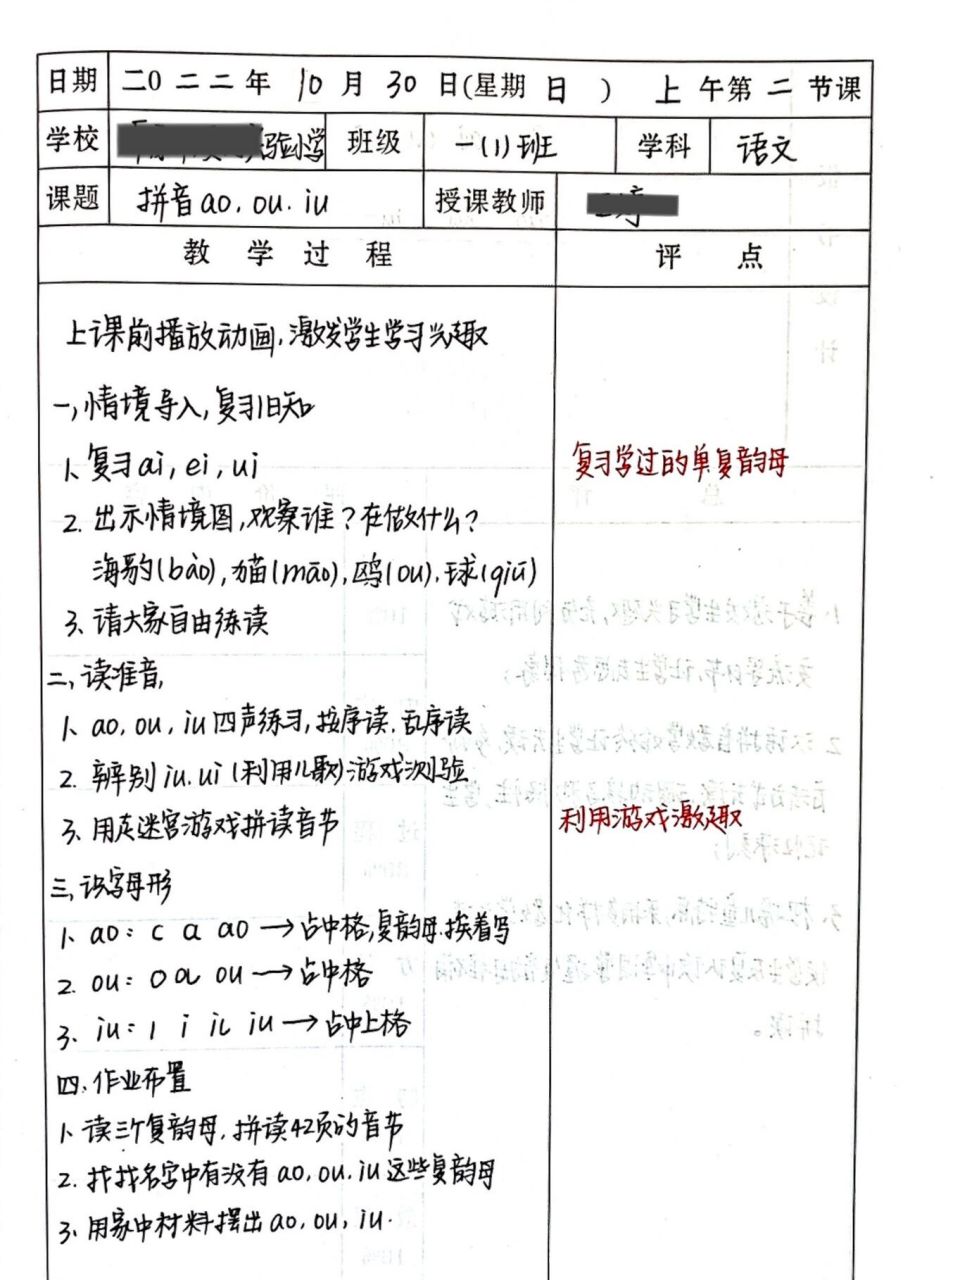 日期 二0二二年 10月30日(星期日) 上午第二节课
学校 验小学 班级 一(1)班 学科 语文
课题 拼音ao, ou. iu 授课教师
教学过程 评点
上课前播放动画,激发学生学习兴趣
一,情境导入,复习旧知
1、复习ai, ei, ui 复习学过的单复韵母
2. 出示情境图,观察谁?在做什么?
海豹(bào), 猫(māo), 鸥(ou). 球(qiū)
3、请大家自由练读
二, 读准音,
1、ao, ou, iu四声练习,按序读.乱序读
2. 辨别iu.ui(利用儿歌)游戏测验
3. 用走迷宫游戏拼读音节 利用游戏激趣
三,识字母形
1、ao: c a ao→占中格,复韵母.挨着写
2. ou: o ou→占中格
3、iu: i iu→占中上格
四.作业布置
1、读三个复韵母,拼读42页的音节
2. 找找名字中有没有ao, ou. iu这些复韵母
3、用家中材料摆出ao, ou, iu.